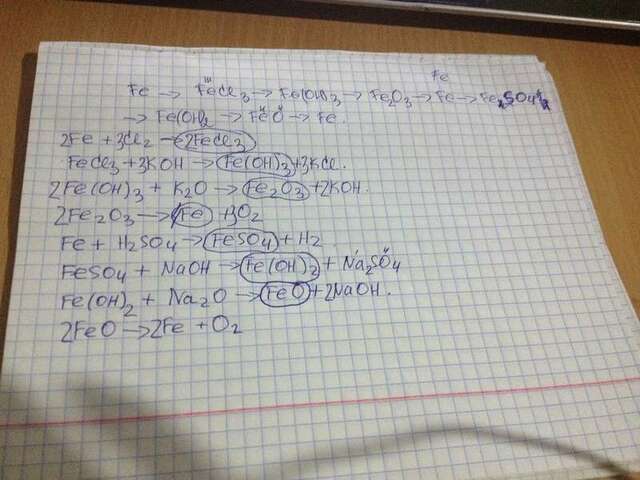 Fe
Fe → FeCl₃ → Fe(OH)₃ → Fe₂O₃ → Fe → FeSO₄
→ Fe(OH)₂ → FeO → Fe.
2Fe + 3Cl₂ → 2FeCl₃
FeCl₃ + 3KOH → Fe(OH)₃ + 3KCl.
2Fe(OH)₃ + K₂O → Fe₂O₃ + 2KOH.
2Fe₂O₃ → 4Fe + 3O₂
Fe + H₂SO₄ → FeSO₄ + H₂
FeSO₄ + NaOH → Fe(OH)₂ + Na₂SO₄
Fe(OH)₂ + Na₂O → FeO + 2NaOH.
2FeO → 2Fe + O₂